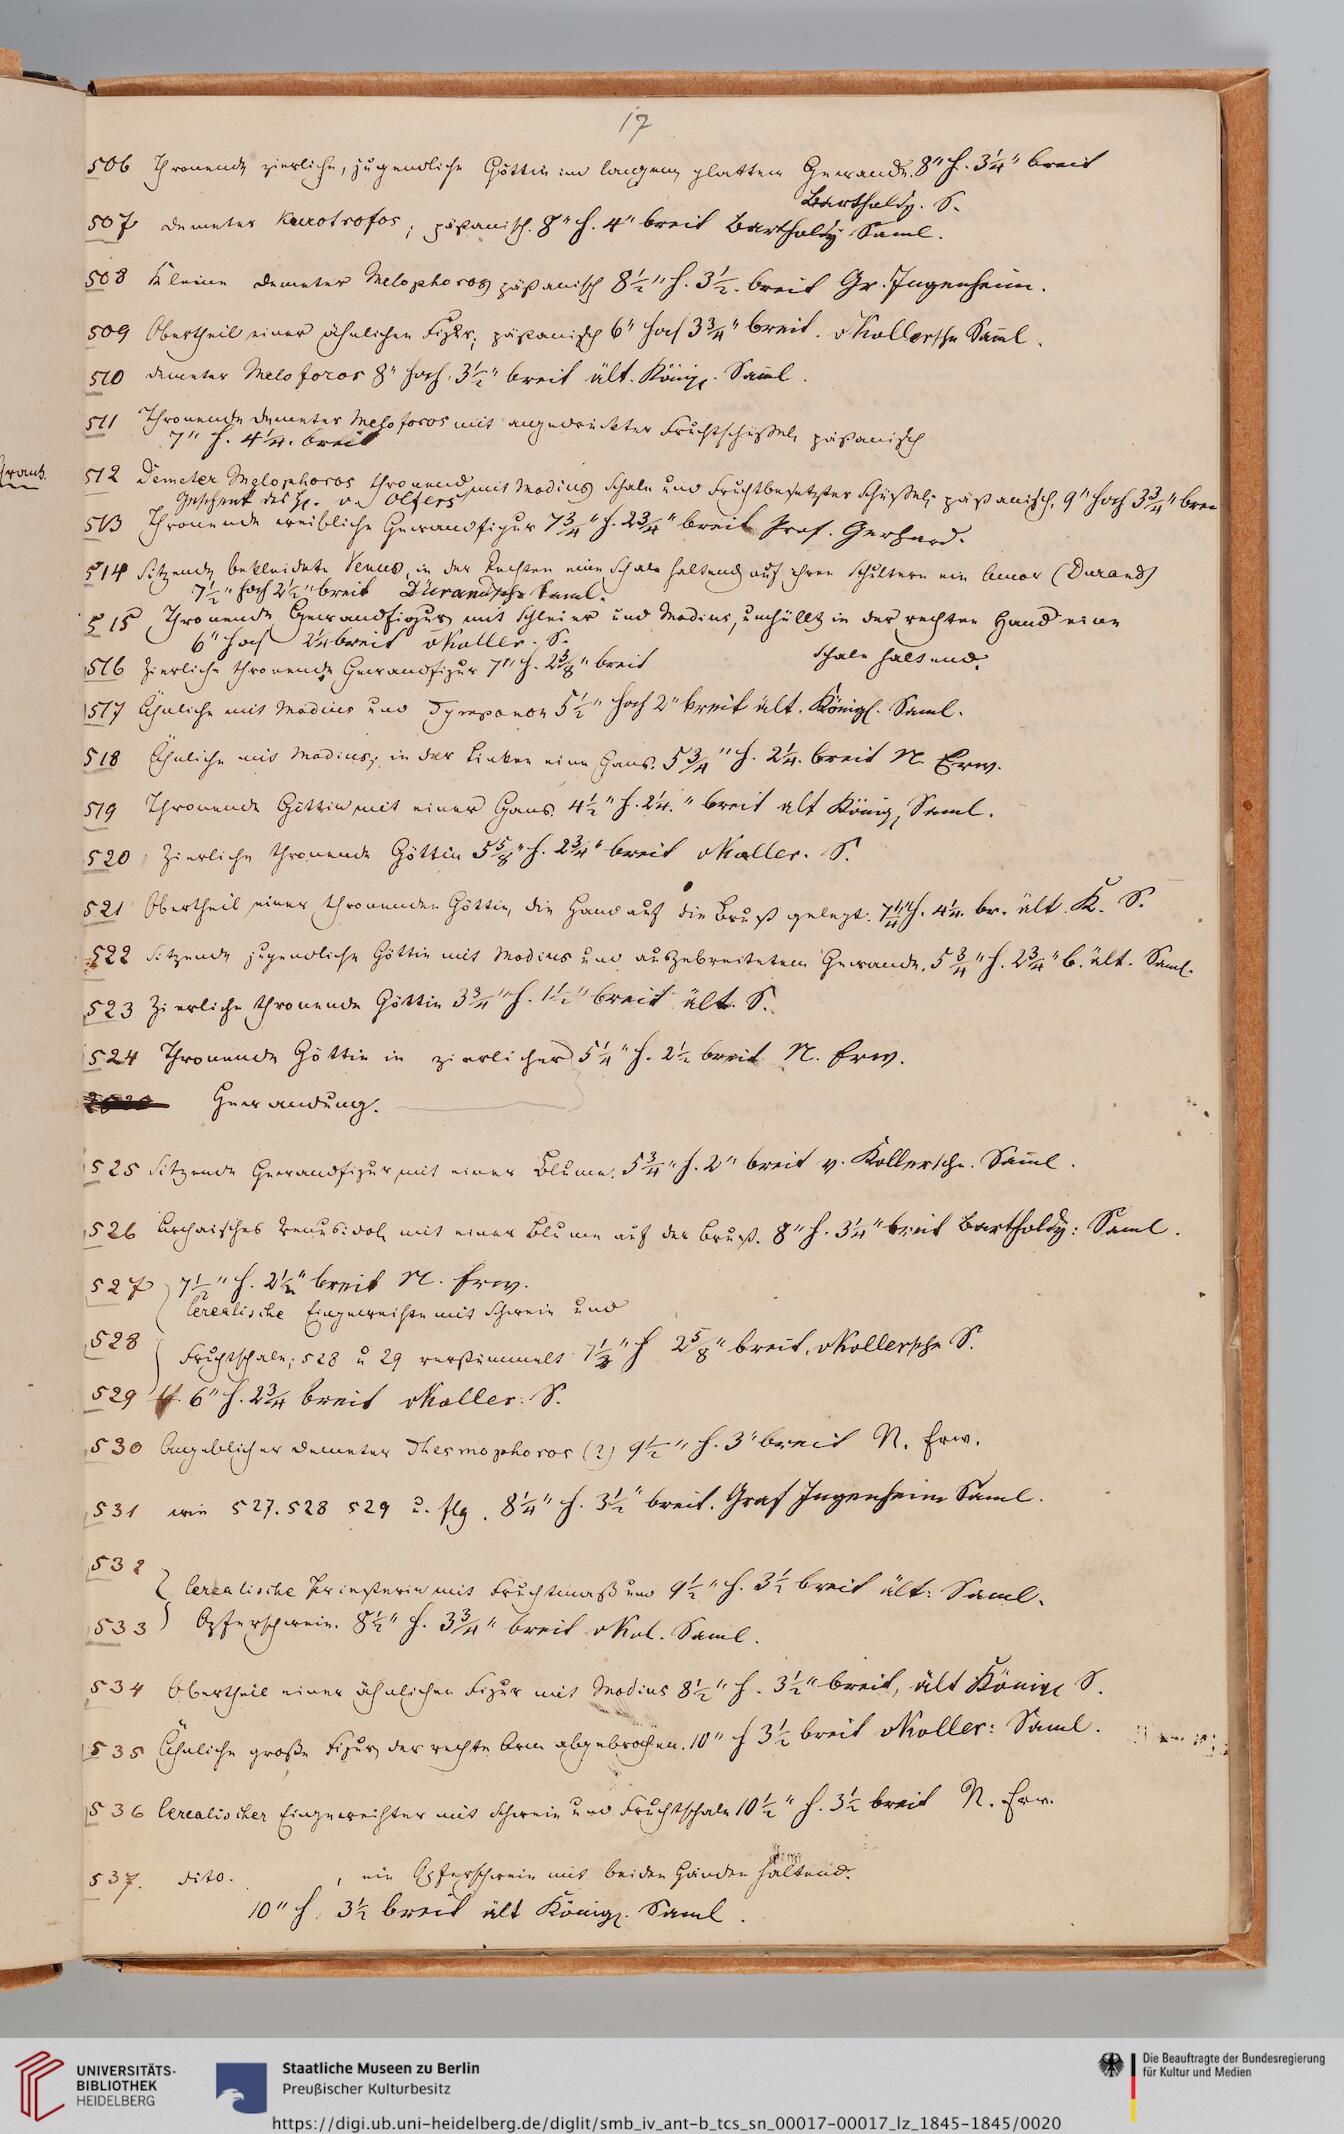 17
506 Thronende zierliche, jugendliche Göttin im langen glatten Gewande. 8" h. 3¼" breit
Bartholdy. S.
507 Demeter Kurotrofos, päßanisch. 8" h. 4" breit Bartholdy Saml.
508 Kleine Demeter Melophoros päßanisch 8½" h. 3½. breit Gr. Ingenheim.
509 Obertheil einer ähnlichen Figur, päßanisch 6" hoch 3¾" breit. vKollersche Saml.
510 Demeter Meloforos 8" hoch. 3½" breit ält. Königl. Saml.
511 Thronende Demeter Meloforos mit angedrückter Fruchtschüßel, päßanisch
7" h. 4¼. breit
512 Demeter Melophoros thronend mit Modius Schale und Fruchtbesetzter Schüßel; päßanisch. 9" hoch 3¾" brei
Geschenk des H. v. Olfers
513 Thronende weibliche Gewandfigur 7¾" h. 2¾" breit Prof. Gerhard.
514 Sitzende bekleidete Venus, in der Rechten eine Schale haltend auf ihren Schultern ein Amor (Durand)
7½" hoch 2½" breit Durandsche Saml.
515 Thronende Gewandfigur mit Schleier und Modius, umhüllt in der rechten Hand eine
6" hoch 2¼ breit vKoller. S.
Schale haltend.
516 Zierliche thronende Gewandfigur 7" h. 2⅜" breit
517 Ähnliche mit Modius und Tympanon 5½" hoch 2" breit ält. Königl. Saml.
518 Ähnliche mit Modius, in der Linken eine Gans. 5¾" h. 2¼. breit N. Erw.
519 Thronende Göttin mit einer Gans. 4½" h. 2¼." breit alt Königl. Saml.
520 Zierliche thronende Göttin 5⅝" h. 2¾" breit vKoller. S.
521 Obertheil einer thronenden Göttin, die Hand auf die Brust gelegt. 7¼" h. 4¼. br. ält. K. S.
522 Sitzende jugendliche Göttin mit Modius und ausgebreitetem Gewande. 5¾" h. 2¾" b. ält. Saml.
523 Zierliche thronende Göttin 3¾" h. 1½" breit ält. S.
524 Thronende Göttin in zierlicher 5¼" h. 2½ breit N. Erw.
Gewandung.
525 Sitzende Gewandfigur mit einer Blume. 5¾" h. 2" breit v. Kollersche. Saml.
526 Archaisches Venusidol, mit einer Blume auf der Brust. 8" h. 3¼" breit Bartholdy: Saml.
527 7½" h. 2½" breit N. Erw.
Cerealische Eingeweihte mit Schwein und
528 Fruchtschale; 528 u 29 verstümmelt 7½" h 2⅝" breit. vKollersche S.
529 6" h. 2¾ breit vKoller: S.
530 Angeblicher Demeter Thesmophoros (?) 9½" h. 3" breit N. Erw.
531 wie 527. 528 529 u. flg. 8¼" h. 3½" breit. Graf Ingenheim Saml.
532
Cerealische Priesterin mit Fruchtmaß und 9½" h. 3½ breit ält: Saml.
533 Opferschwein. 8½" h. 3¾" breit vKol. Saml.
534 Obertheil einer ähnlichen Figur mit Modius 8½" h. 3½" breit, ält Königl S.
535 Ähnliche große Figur, der rechte Arm abgebrochen. 10" h 3½ breit vKoller: Saml.
536 Cerealischer Eingeweihter mit Schwein und Fruchtschale 10½" h. 3½ breit N. Erw.
537. dito. , ein Opferschwein mit beiden Händen haltend.
10" h. 3½ breit ält Königl. Saml.
UNIVERSITÄTS-
BIBLIOTHEK
HEIDELBERG
Staatliche Museen zu Berlin
Preußischer Kulturbesitz
Die Beauftragte der Bundesregierung
für Kultur und Medien
https://digi.ub.uni-heidelberg.de/diglit/smb_iv_ant-b_tcs_sn_00017-00017_lz_1845-1845/0020